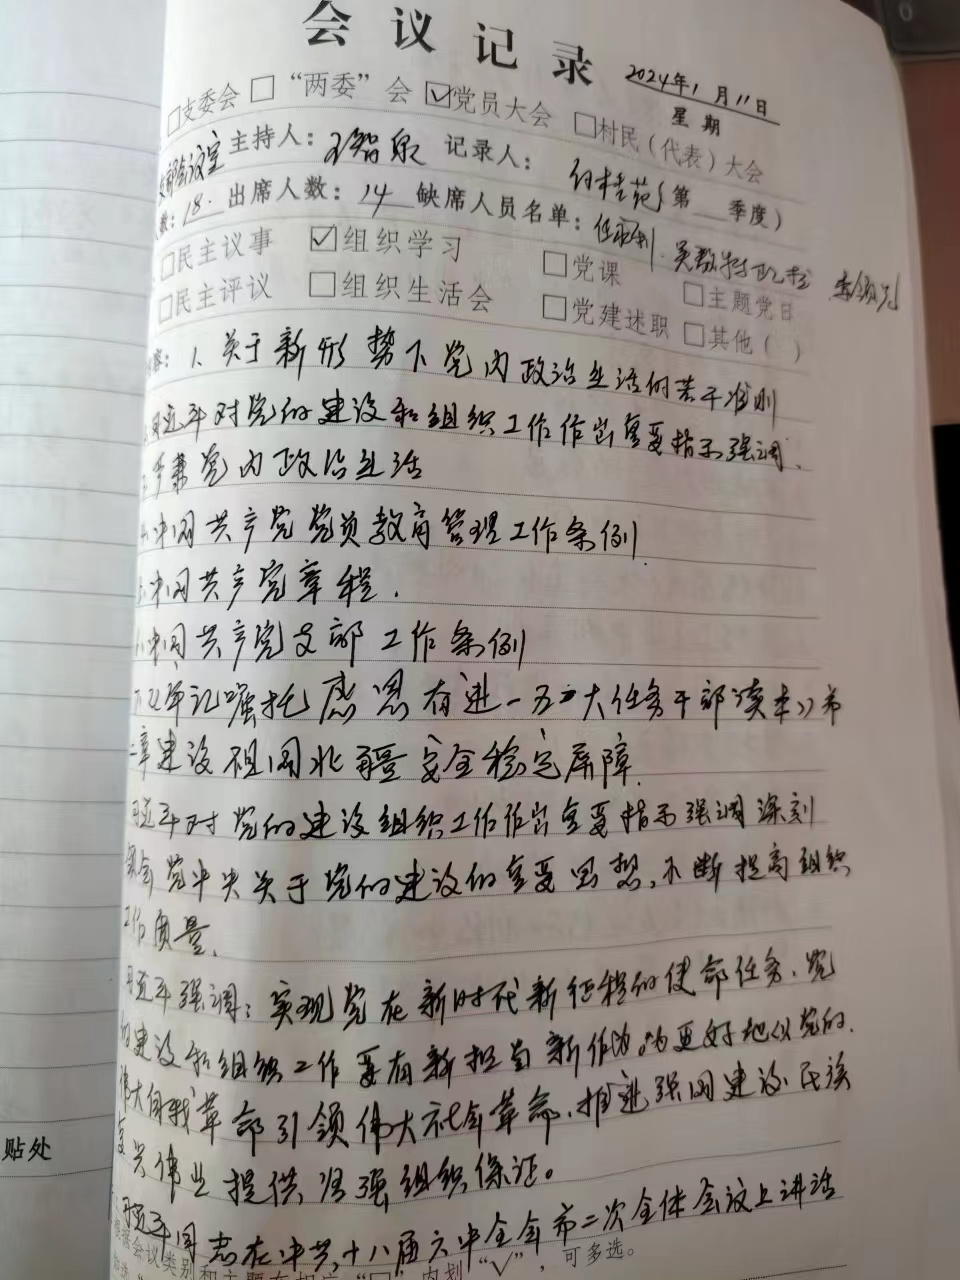 会议记录
2024年1月11日
□支委会 □“两委”会 ☑党员大会 □村民（代表）大会 星期
会议室 主持人： 记录人： （第 季度）
数：18. 出席人数：14 缺席人员名单：
□民主议事 ☑组织学习 □党课 □主题党日
□民主评议 □组织生活会 □党建述职 □其他（ ）
容：1、关于新形势下党内政治生活的若干准则
习近平对党的建设和组织工作作出重要指示强调、
严肃党内政治生活
中国共产党党员教育管理工作条例
中国共产党章程.
中国共产党支部工作条例
记嘱托感恩奋进-五大任务干部读本》第
二章建设祖国北疆安全稳定屏障.
习近平对党的建设组织工作作出重要指示强调深刻
领会党中央关于党的建设的重要思想,不断提高组织
工作质量.
习近平强调：实现党在新时代新征程的使命任务、党
的建设和组织工作要有新担当新作为为更好地以党的
伟大自我革命引领伟大社会革命、推进强国建设、民族
复兴伟业提供坚强组织保证。
习近平同志在中共十八届六中全会第二次全体会议上讲话
根据会议类别和主题在相应“□”内划“√”，可多选。
贴处